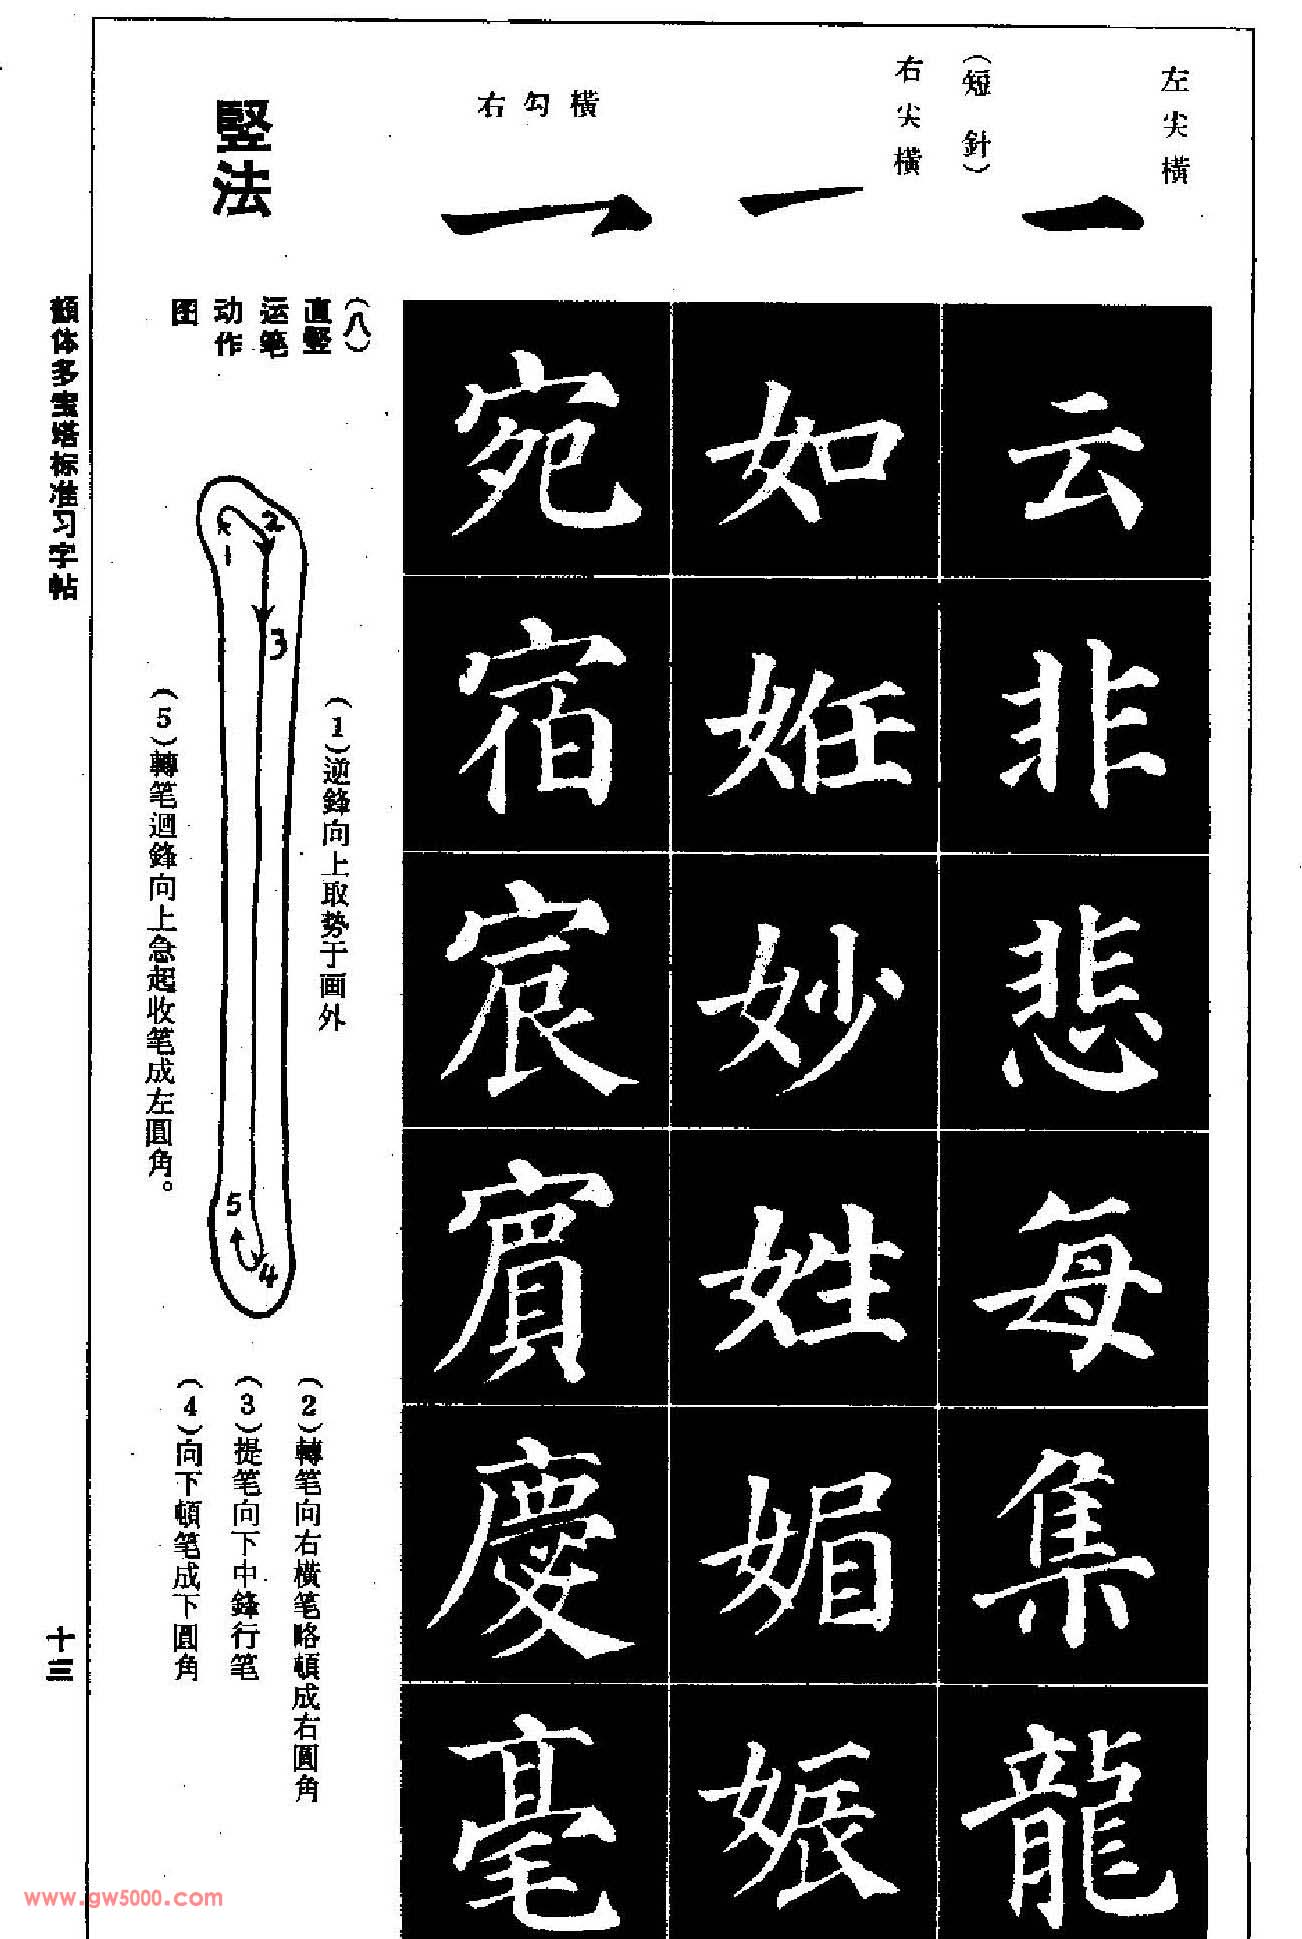 左尖横
云
非
悲
每
集
龍
(短針)
右尖横
如
姙
妙
姓
媚
娠
右勾横
宛
宿
宸
賔
慶
毫
竪法
(八)
直竪
运笔
动作
图
1
2
3
4
5
(1)逆鋒向上取势于画外
(2)轉笔向右横笔略頓成右圓角
(3)提笔向下中鋒行笔
(4)向下頓笔成下圓角
(5)轉笔迴鋒向上急起收笔成左圓角。
顔体多宝塔标准习字帖
十三
www.gw5000.com